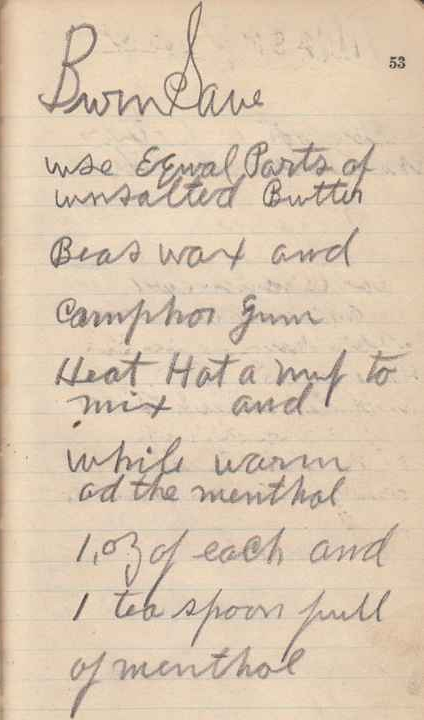 53
Burn Save
use Equal Parts of
unsalted Butter
Beas wax and
Camphor Gum
Heat Hot a nuf to
mix and
while warm
ad the menthol
1, oz of each and
1 tea spoon full
of menthol